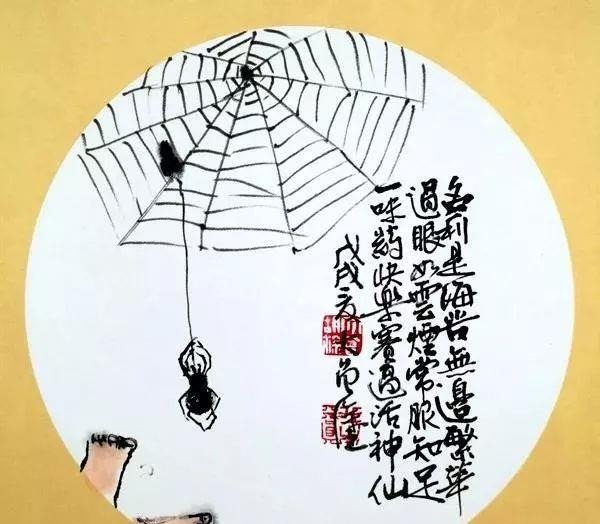 名利是海苦無邊繁華
過眼如雲煙常服知足
一味葯快樂賽過活神仙
戊戌夏大